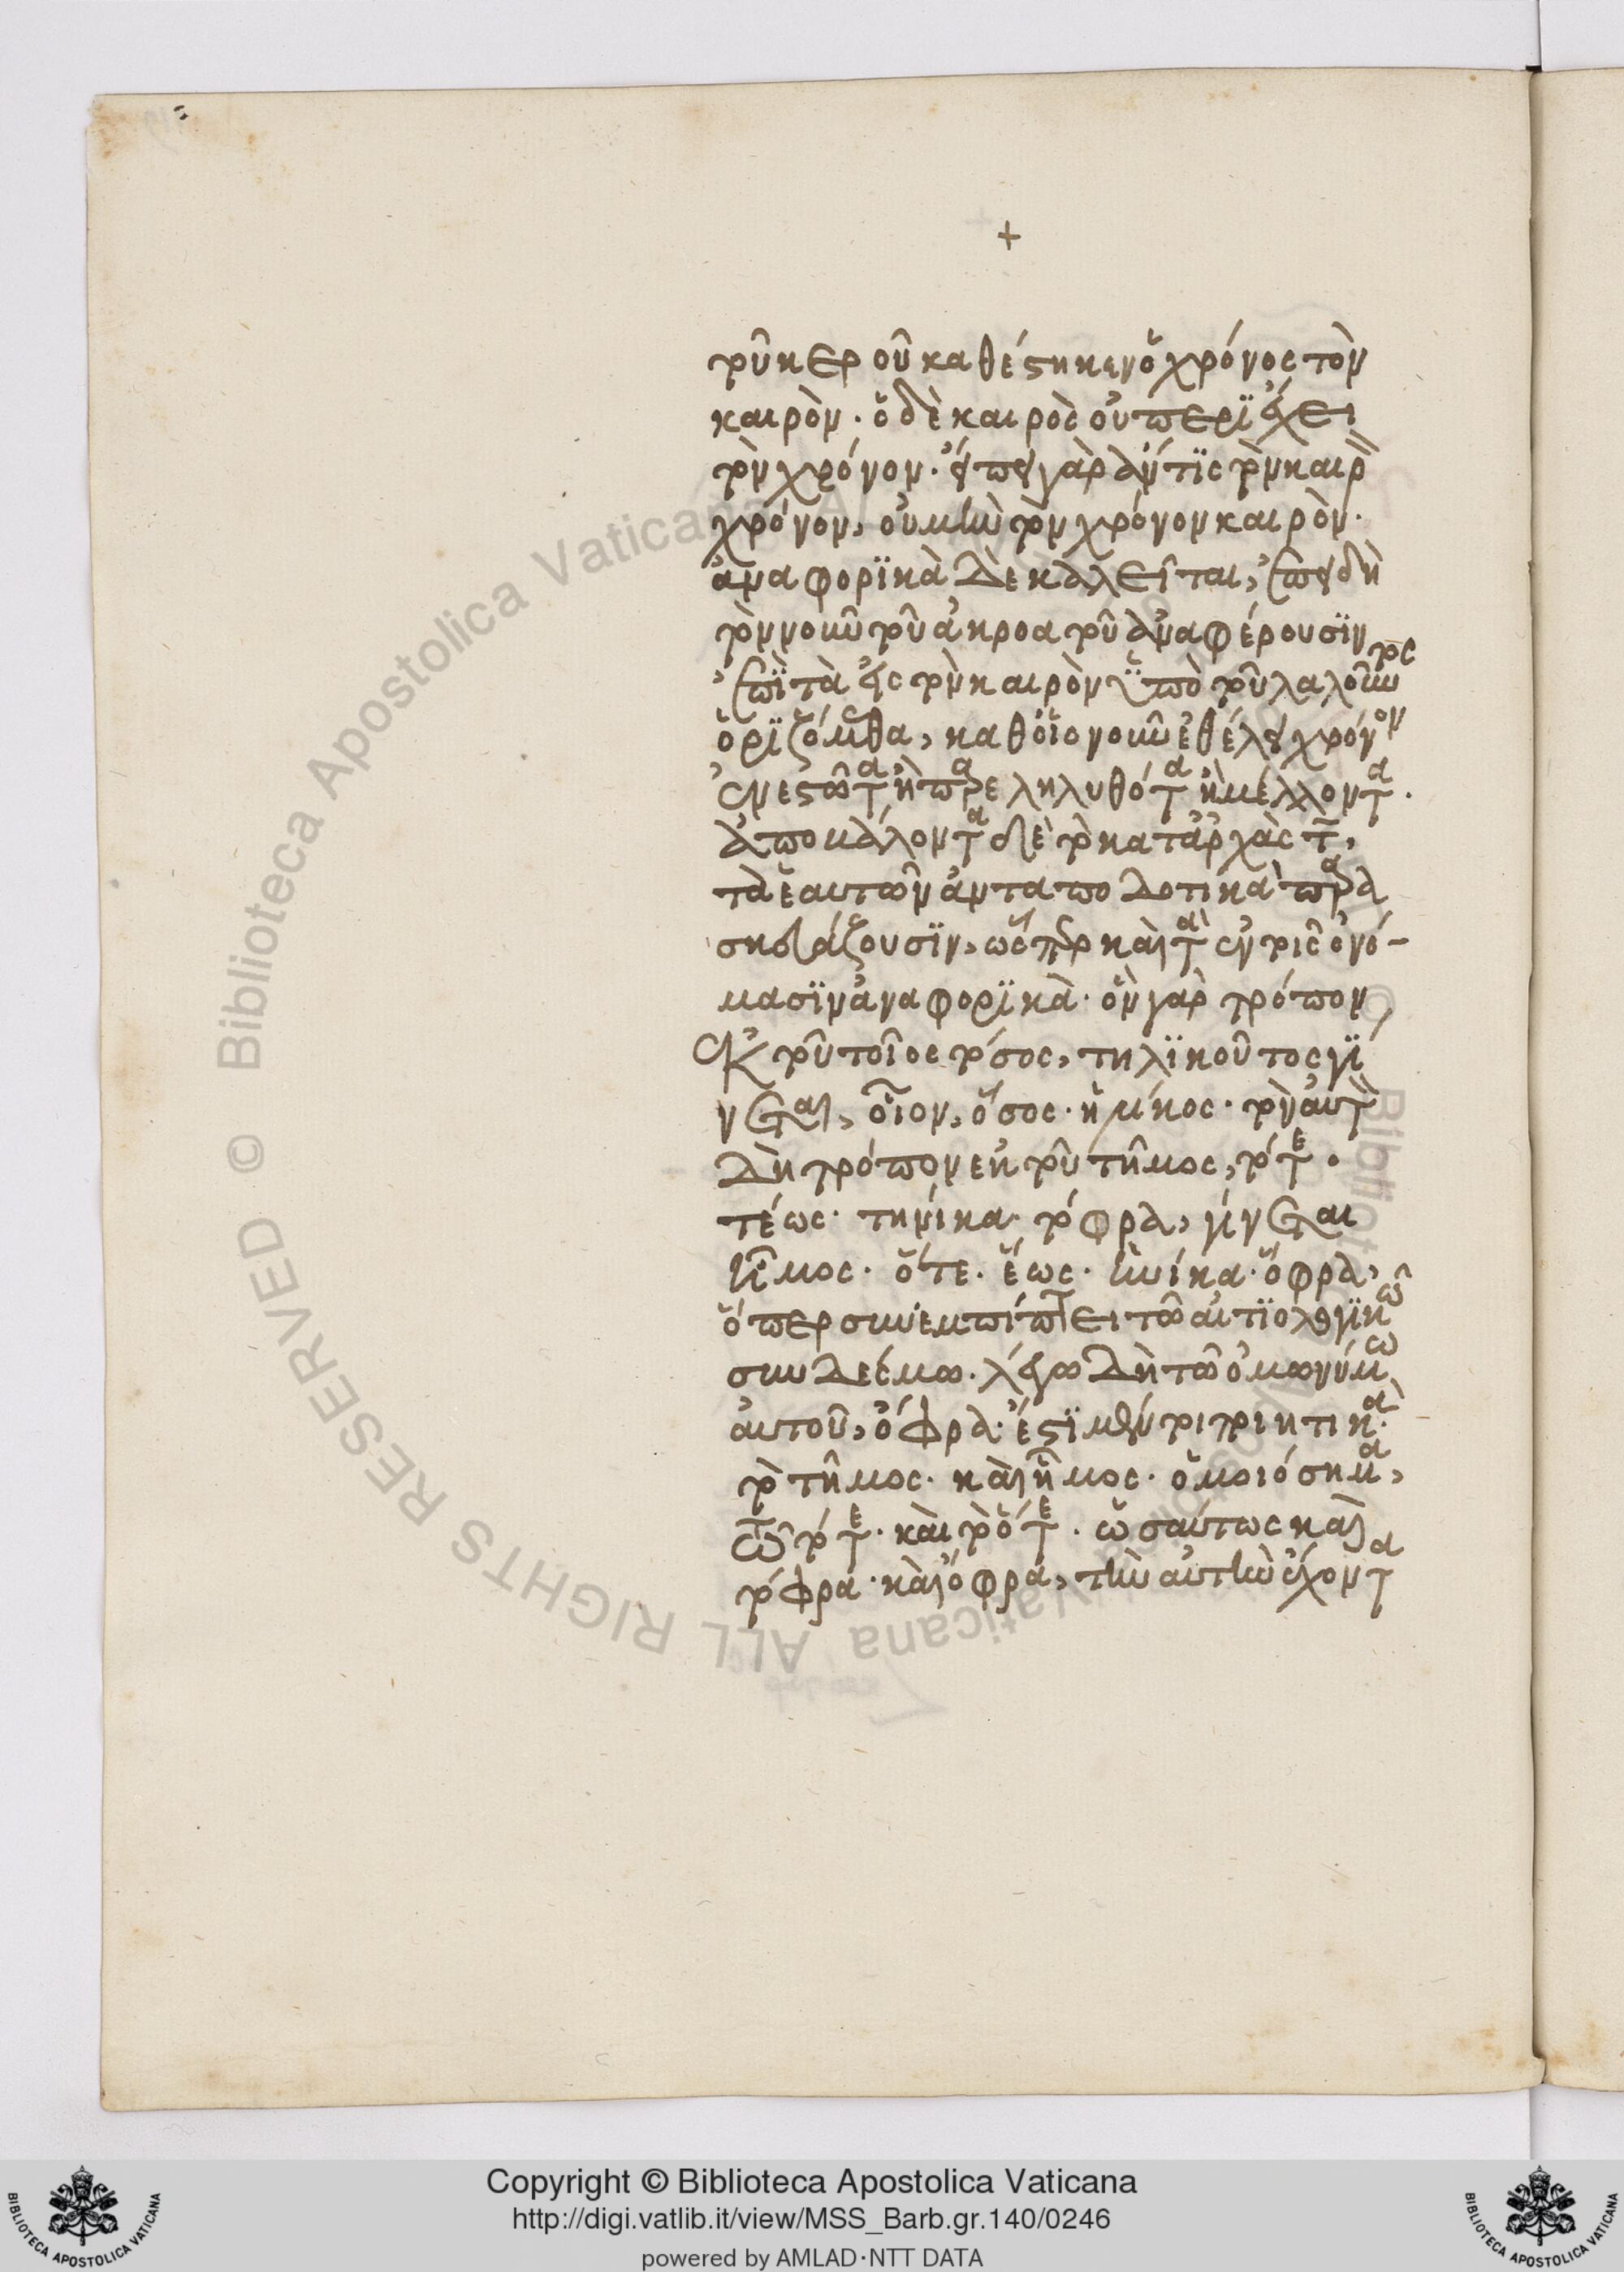 +
τοῦ περ οὖν καθέστηκεν ὁ χρόνος τὸν
καιρὸν· ὁ δὲ καιρὸς οὐ περιέχει
τὸν χρόνον· εἴποι γὰρ ἄν τις τὸν καιρὸν
χρόνον, οὐ μὴν τὸν χρόνον καιρὸν·
ἀναφορικὰ δὲ καλεῖται, ἐπειδὴ
τὸν νοῦν τοῦ ἀκροατοῦ ἀναφέρουσιν
ἐπὶ τὰ εἰς τὸν καιρὸν ὑπὸ τοῦ λαλοῦντος
ὁριζόμεθα, καθ' οἷον οὖν ἐθέλει χρόνον
ἐνεστῶτα ἢ παρεληλυθότα ἢ μέλλοντα.
ἀποκάλουντα δὲ τὸ κατ' ἀρχὰς τ,
τὰ ἑαυτῶν ἀνταποδοτικὰ παρα
σκευάζουσιν, ὥσπερ καὶ τὰ ἐν τοῖς ὀνό-
μασιν ἀναφορικὰ· ὃν γὰρ τρόπον
ἐκ τοῦ τοῖος τόσος, τηλικοῦτος γί
νεται, οἷον, ὅσος· ἡλίκος· τὸν αὐτὸν
δὴ τρόπον ἐκ τοῦ τῆμος, τότε·
τέως· τηνίκα· τόφρα, γίνεται
ἦμος· ὅτε· ἕως· ἡνίκα· ὄφρα,
ὅπερ συνεμπίπτει τῷ αἰτιολογικῷ
συνδέσμῳ· λέγω δὴ τῷ ὁμωνύμῳ
αὐτοῦ, ὄφρα· ἔστι μέντοι ποιητικὰ·
τὸ τῆμος· καὶ ἦμος· ὁμοιόσημα,
τῷ τότε· καὶ τὸ ὅτε· ὡσαύτως καὶ
τόφρα· καὶ ὄφρα, τὴν αὐτὴν ἔχοντα
Copyright © Biblioteca Apostolica Vaticana
http://digi.vatlib.it/view/MSS_Barb.gr.140/0246
powered by AMLAD·NTT DATA
BIBLIOTECA APOSTOLICA VATICANA
BIBLIOTECA APOSTOLICA VATICANA
© Biblioteca Apostolica Vaticana ALL RIGHTS RESERVED